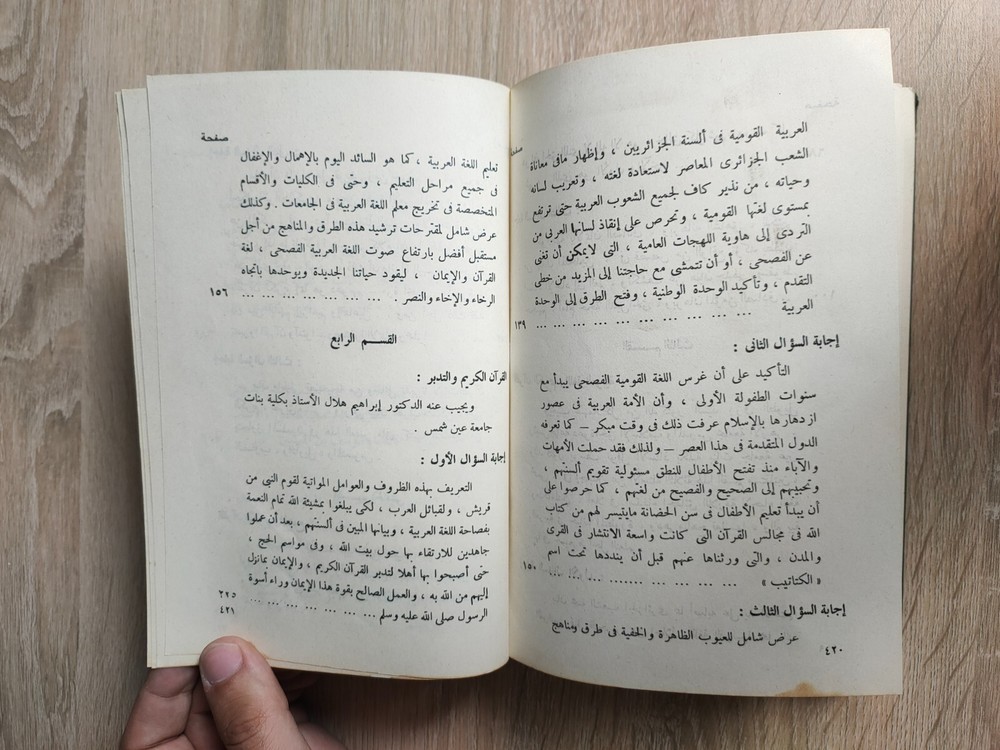 صفحة
العربية القومية فى ألسنة الجزائريين ، وإظهار مافى معاناة
الشعب الجزائرى المعاصر لاستعادة لغته ، وتعريب لسانه
وحياته ، من نذير كاف لجميع الشعوب العربية حتى ترتفع
بمستوى لغتها القومية ، وتحرص على إنقاذ لسانها العربى من
التردى إلى هاوية اللهجات العامية ، التى لايمكن أن تغنى
عن الفصحى ، أو أن تتمشى مع حاجتنا إلى المزيد من خطى
التقدم ، وتأكيد الوحدة الوطنية ، وفتح الطرق إلى الوحدة
العربية ... ... ... ... ... ... ... ... ١٣٩
إجابة السؤال الثانى :
التأكيد على أن غرس اللغة القومية الفصحى يبدأ مع
سنوات الطفولة الأولى ، وأن الأمة العربية فى عصور
ازدهارها بالإسلام عرفت ذلك فى وقت مبكر – كما تعرفه
الدول المتقدمة فى هذا العصر – ولذلك فقد حملت الأمهات
والآباء منذ تفتح الأطفال للنطق مسئولية تقويم ألسنتهم ،
وتحبيبهم إلى الصحيح والفصيح من لغتهم ، كما حرصوا على
أن يبدأ تعليم الأطفال فى سن الحضانة مايتيسر لهم من كتاب
الله فى مجالس القرآن التى كانت واسعة الانتشار فى القرى
والمدن ، والتى ورثناها عنهم قبل أن ينددها تحت اسم
« الكتاتيب » ... ... ... ... ... ... ... ١٥٠
إجابة السؤال الثالث :
عرض شامل للعيوب الظاهرة والخفية فى طرق ومناهج
٤٢٠
صفحة
تعليم اللغة العربية ، كما هو السائد اليوم بالإهمال والإغفال
فى جميع مراحل التعليم ، وحتى فى الكليات والأقسام
المتخصصة فى تخريج معلم اللغة العربية فى الجامعات . وكذلك
عرض شامل لمقترحات ترشيد هذه الطرق والمناهج من أجل
مستقبل أفضل بارتفاع صوت اللغة العربية الفصحى ، لغة
القرآن والإيمان ، ليقود حياتنا الجديدة ويوحدها باتجاه
الرخاء والإخاء والنصر . ... ... ... ... ... ... ... ١٥٦
القسم الرابع
القرآن الكريم والتدبر :
ويجيب عنه الدكتور إبراهيم هلال الأستاذ بكلية بنات
جامعة عين شمس .
إجابة السؤال الأول :
التعريف بهذه الظروف والعوامل المواتية لقوم النبى من
قريش ، ولقبائل العرب ، لكى يبلغوا بمشيئة الله تمام النعمة
بفصاحة اللغة العربية ، وبيانها المبين فى ألسنتهم ، بعد أن عملوا
جاهدين للارتقاء بها حول بيت الله ، وفى مواسم الحج ،
حتى أصبحوا بها أهلا لتدبر القرآن الكريم ، والإيمان بمانزل
إليهم من الله به ، والعمل الصالح بقوة هذا الإيمان وراء أسوة
الرسول صلى الله عليه وسلم ... ... ... ... ... ... ... ٢٢٥
٤٢١